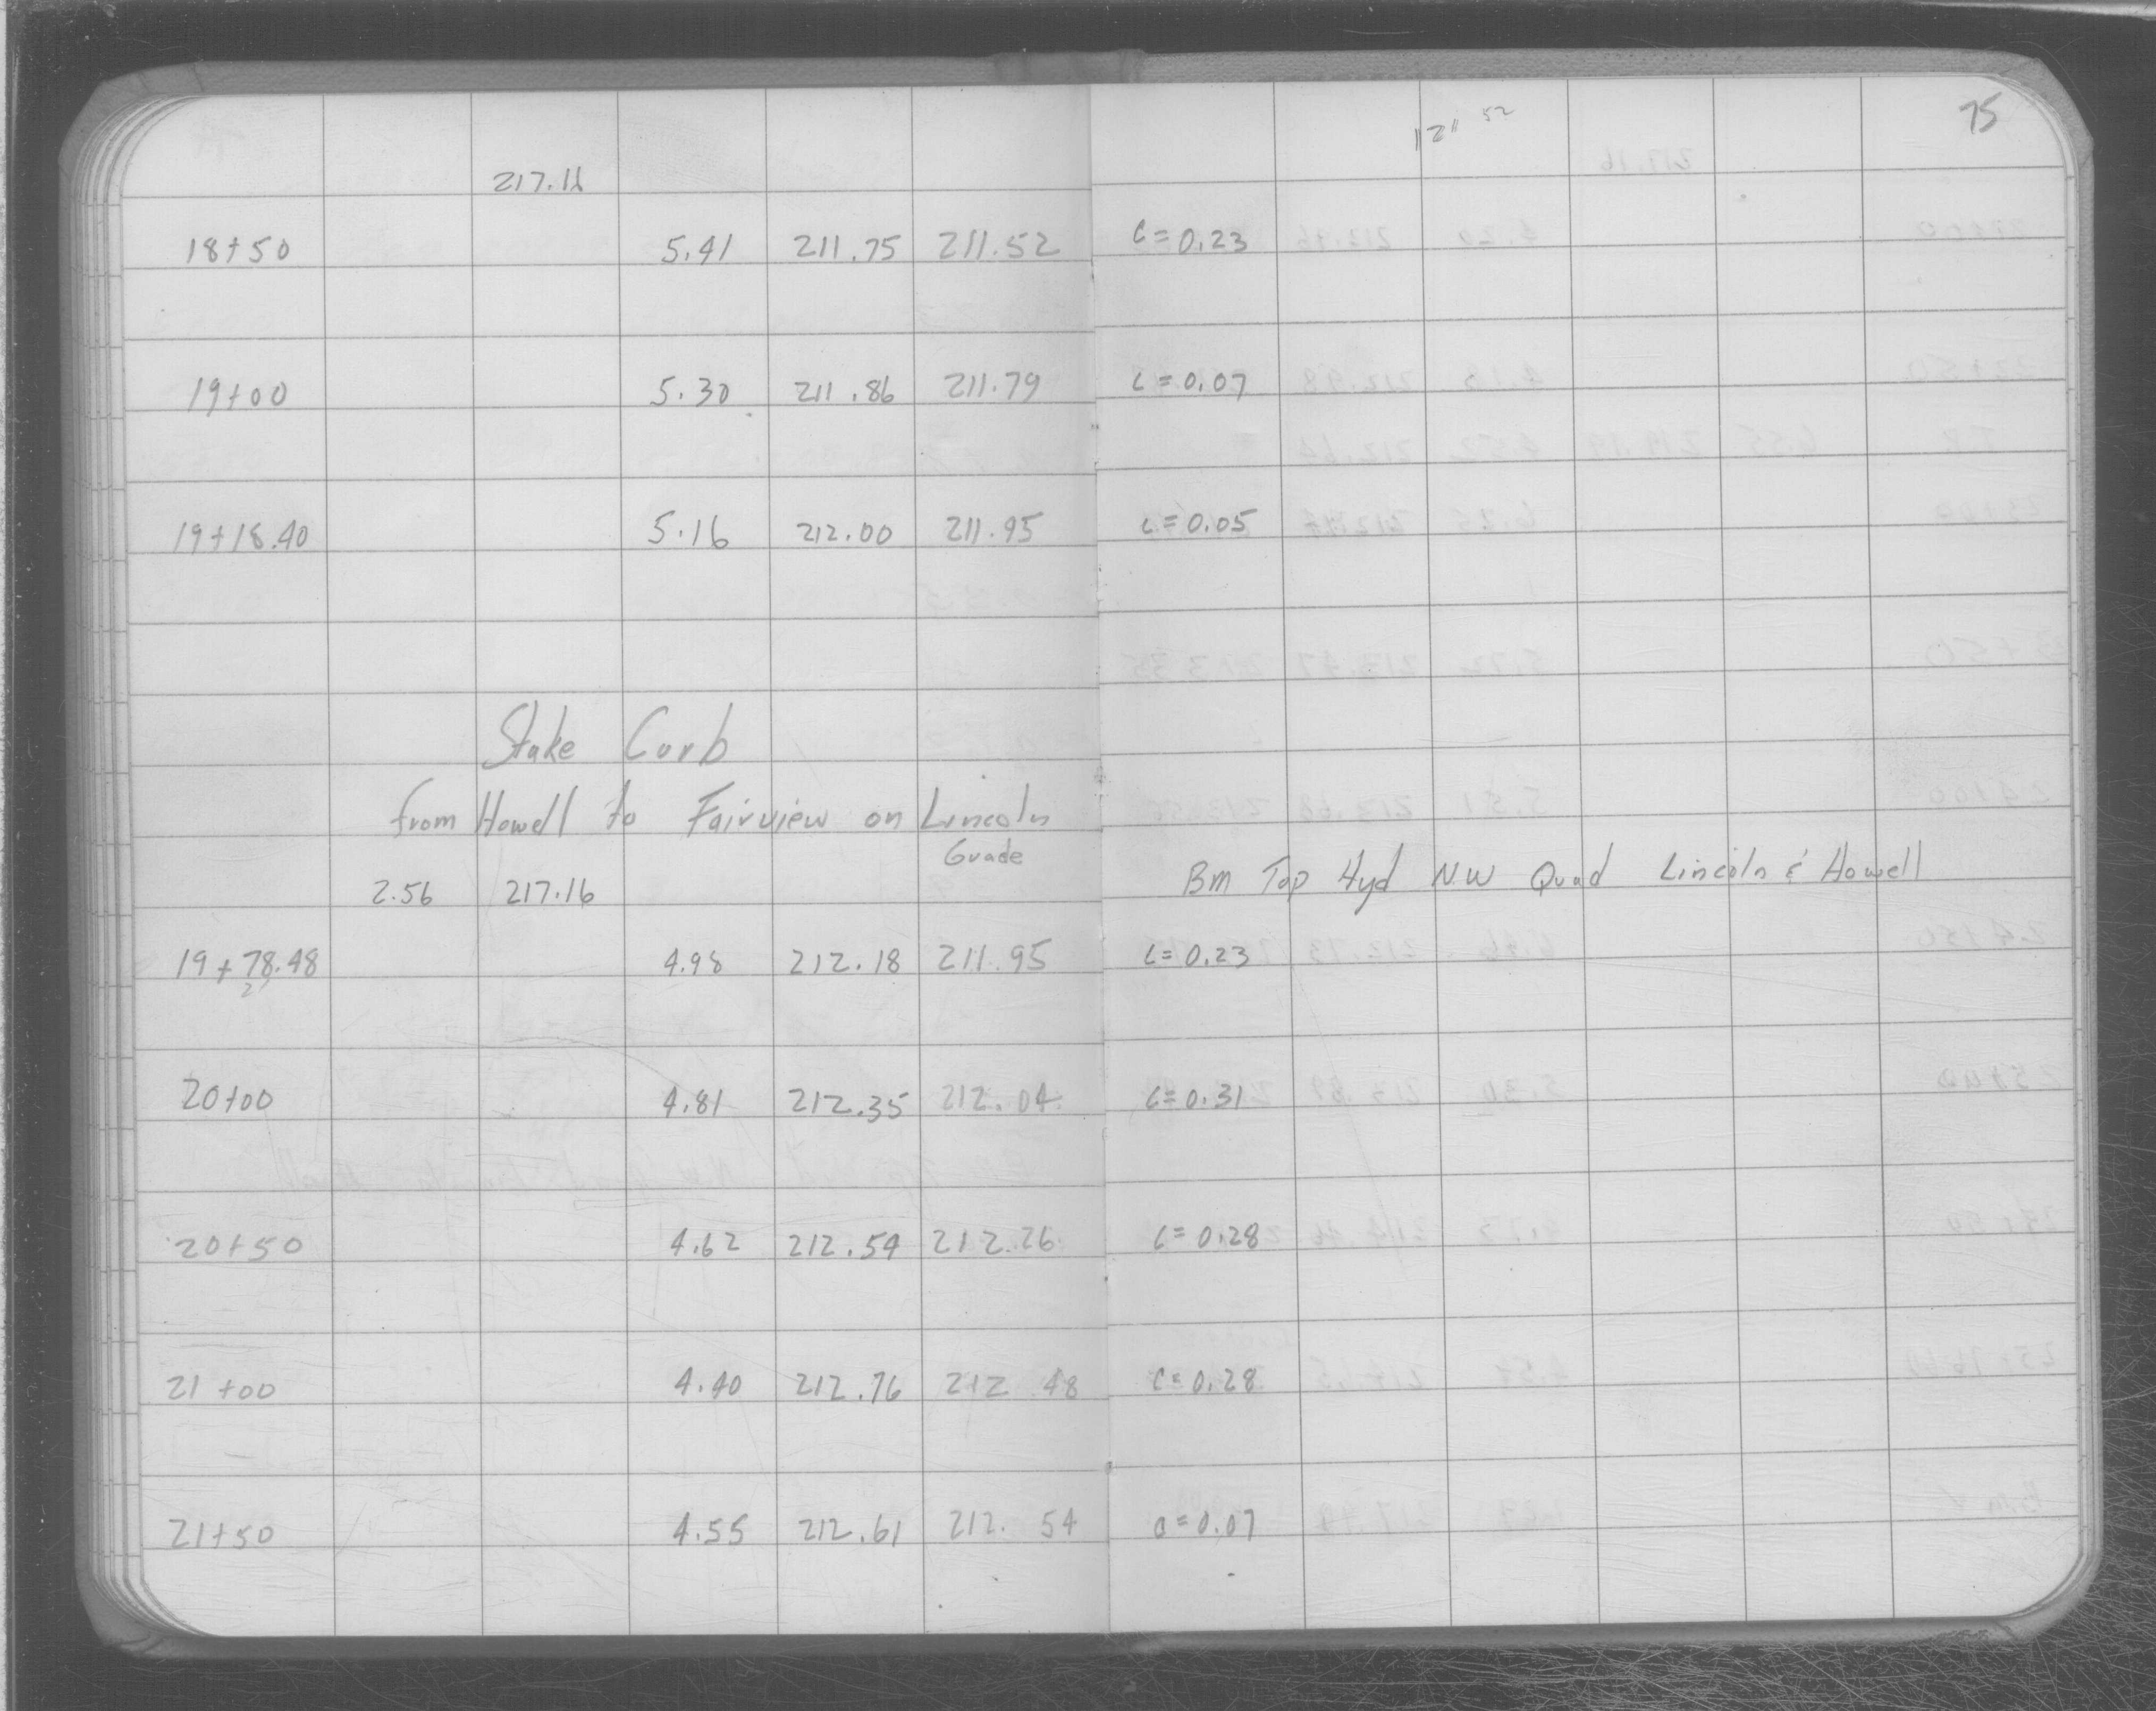 75
217.16
18+50 5.41 211.75 211.52 C=0.23
19+00 5.30 211.86 211.79 C=0.07
19+18.40 5.16 212.00 211.95 C=0.05
Stake Curb
from Howell to Fairview on Lincoln
Grade
2.56 217.16 Bm Top Hyd N.W Quad Lincoln & Howell
19+78.48 4.98 212.18 211.95 C=0.23
20+00 4.81 212.35 212.04 C=0.31
20+50 4.62 212.54 212.26 C=0.28
21+00 4.40 212.76 212.48 C=0.28
21+50 4.55 212.61 212.54 C=0.07